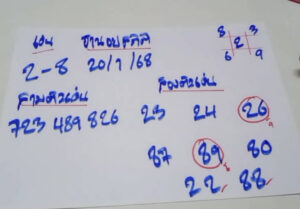 เด่น ชานอบสกลิสิ
2-8 20/1/68
8 3
2
6 9
สามตัวเน้น สองตัวเน้น
723 489 826 23 24 26
87 89 80
22 88